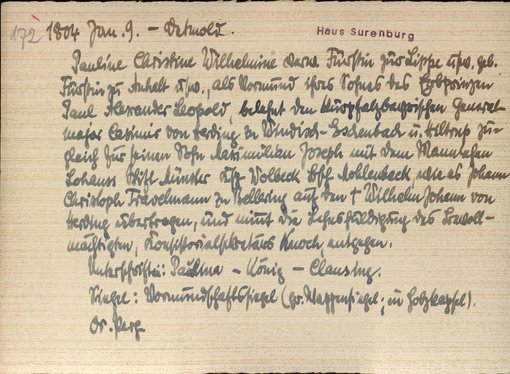 172 1804 Jan. 9. - Detmold.
Haus Surenburg
Pauline Christine Wilhelmine verw. Fürstin zur Lippe usw, geb.
Fürstin zu Anhalt usw., als Vormund ihres Sohnes des Erbprinzen
Paul Alexander Leopold, belehnt den Kurpfalzbayrischen General
major Casimir von Herding zu Windisch-Eschenbach u. Hiltrup zu-
gleich für seinen Sohn Maximilian Joseph mit dem Mannlehen
Lohaus Stift Münster Ksp Wolbeck Bsch Mohlenbeck wie es Johann
Christoph Travelmann zu auf den † Wilhelm Johann von
Herding übertragen, und nimmt die Lehnshuldigung des Bevoll-
mächtigten, Konsistorialsekretärs Knoch entgegen.
Unterschriften: Paulina - König - Clausing.
Siegel: Vormundschaftssiegel (gr. Wappensiegel, in Holzkapsel).
Or. Perg